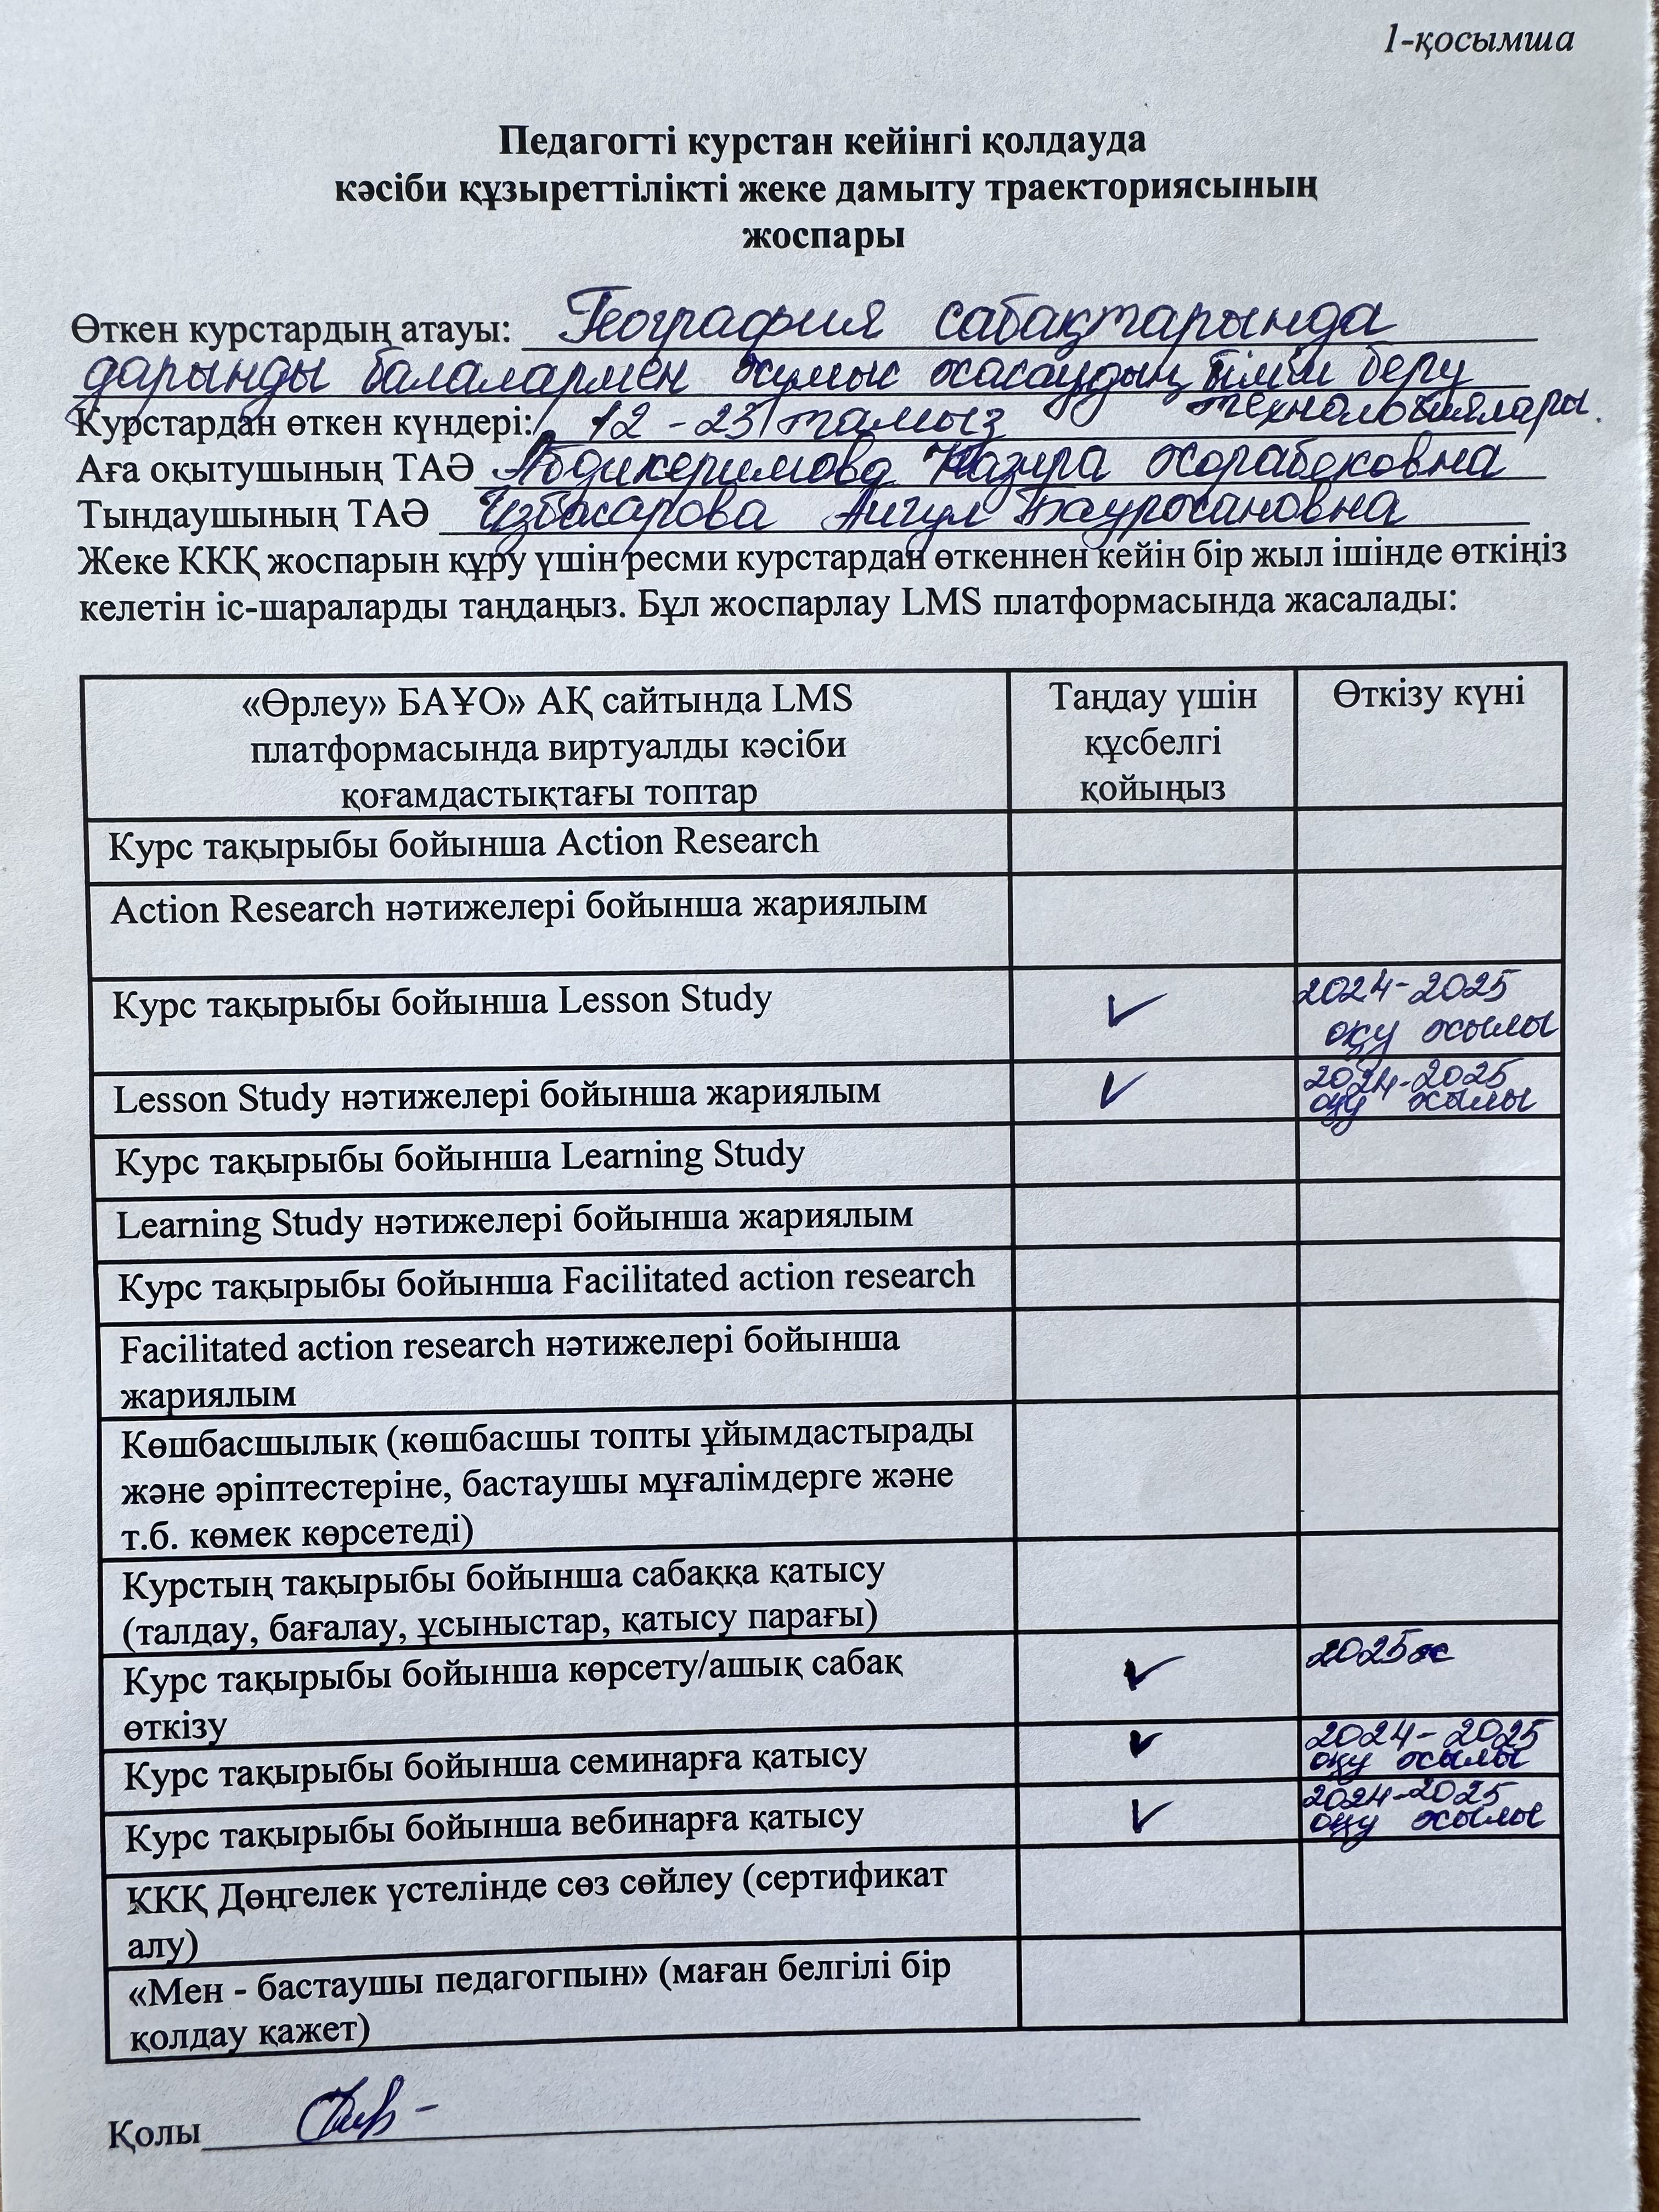 1-қосымша
Педагогті курстан кейінгі қолдауда
кәсіби құзыреттілікті жеке дамыту траекториясының
жоспары
Өткен курстардың атауы: География сабақтарында
дарынды балалармен жұмыс жасаудың білім беру
технологиялары.
Курстардан өткен күндері: 12-23 тамыз
Аға оқытушының ТАӘ Абдикеримова Назира Жорабековна
Тындаушының ТАӘ Избасарова Айгул Бауржановна
Жеке ККҚ жоспарын құру үшін ресми курстардан өткеннен кейін бір жыл ішінде өткіңіз
келетін іс-шараларды таңдаңыз. Бұл жоспарлау LMS платформасында жасалады:
«Өрлеу» БАҰО» АҚ сайтында LMS
платформасында виртуалды кәсіби
қоғамдастықтағы топтар
Таңдау үшін
құсбелгі
қойыңыз
Өткізу күні
Курс тақырыбы бойынша Action Research
Action Research нәтижелері бойынша жариялым
Курс тақырыбы бойынша Lesson Study
2024-2025
оқу жылы
Lesson Study нәтижелері бойынша жариялым
2024-2025
оқу жылы
Курс тақырыбы бойынша Learning Study
Learning Study нәтижелері бойынша жариялым
Курс тақырыбы бойынша Facilitated action research
Facilitated action research нәтижелері бойынша
жариялым
Көшбасшылық (көшбасшы топты ұйымдастырады
және әріптестеріне, бастаушы мұғалімдерге және
т.б. көмек көрсетеді)
Курстың тақырыбы бойынша сабаққа қатысу
(талдау, бағалау, ұсыныстар, қатысу парағы)
Курс тақырыбы бойынша көрсету/ашық сабақ
өткізу
2025ж
Курс тақырыбы бойынша семинарға қатысу
2024-2025
оқу жылы
Курс тақырыбы бойынша вебинарға қатысу
2024-2025
оқу жылы
ККҚ Дөңгелек үстелінде сөз сөйлеу (сертификат
алу)
«Мен - бастаушы педагогпын» (маған белгілі бір
қолдау қажет)
Қолы